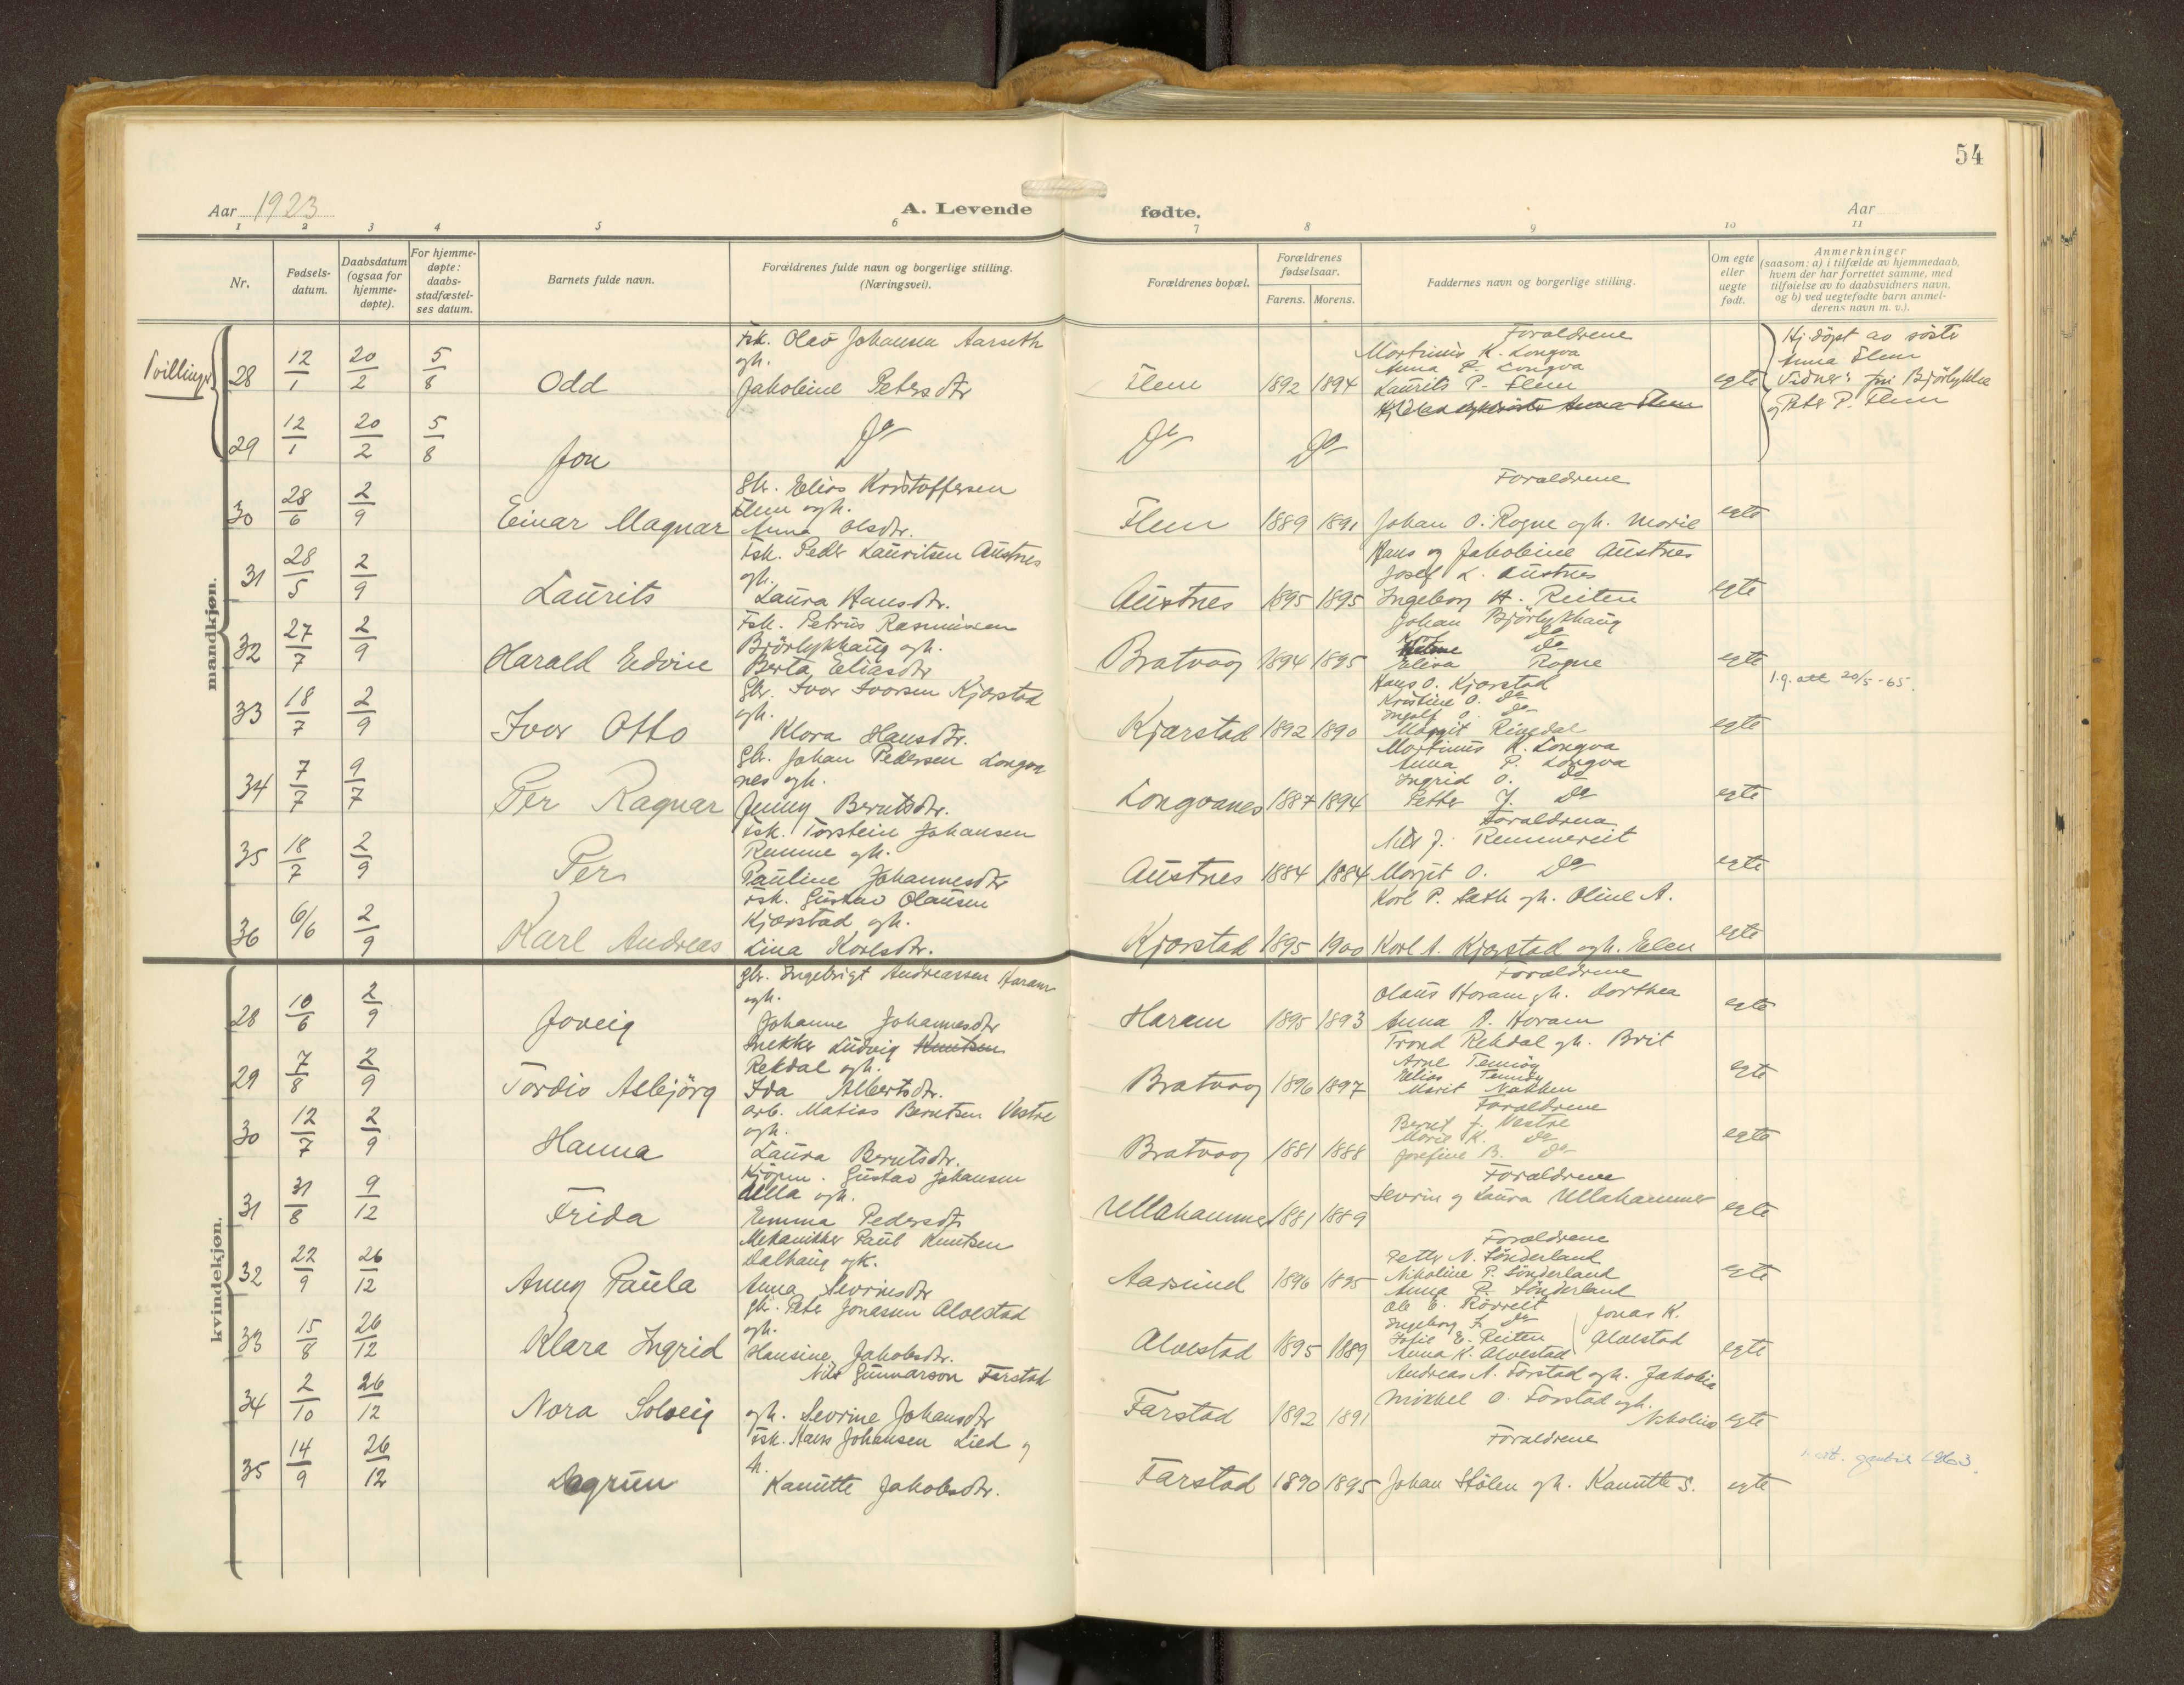 54
Aar 1923
A. Levende fødte.
Aar
1 2 3 4 5 6 7 8 9 10 11
Nr.
Fødsels-
datum.
Daabsdatum
(ogsaa for
hjemme-
døpte).
For hjemme-
døpte:
daabs-
stadfæstel-
ses datum.
Barnets fulde navn.
Forældrenes fulde navn og borgerlige stilling.
(Næringsvei).
Forældrenes bopæl.
Forældrenes
fødselsaar.
Farens. Morens.
Faddernes navn og borgerlige stilling.
Om egte
eller
uegte
født.
Anmerkninger
(saasom: a) i tilfælde av hjemmedaab,
hvem der har forrettet samme, med
tilføielse av to daabsvidners navn,
og b) ved uegtefødte barn anmel-
derens navn m. v.).
mandkjøn.
Tvillinger
28 12/1 20/2 5/8 Odd
Fsk. Olav Johansen Aarseth
gh.
Jakobine Petersdtr
Flem 1892 1894
Foraldrene
Martinus K. Longva
Anna P. Longva
Laurits P. Flem
egte
Hj. döpt av söste
Anna Flem
Vidner: Bjørlykke
og Peter P. Flem
29 12/1 20/2 5/8 Jon
Do
Do Do
30 28/6 2/9 Einar Magnar
Gbr. Elias Kristoffersen
Flem ogh.
Anna Olsdtr.
Flem 1889 1891
Foraldrene
Johan O. Rogne ogh. Marie
egte
31 28/5 2/9 Laurits
Fsk. Peder Lauritsen Austnes
gh.
Laura Hansdtr.
Austnes 1895 1895
Hans og Jakobine Austnes
Josef L. Austnes
Ingeborg H. Reiten
egte
32 27/7 2/9 Harald Edvin
Fsk. Petrus Rasmussen
Bjørlykhaug ogh.
Berta Eliasdtr
Bratvaag 1894 1895
Johan Bjørlykhaug
Do
Do
Elina Rogne
egte
33 18/7 2/9 Ivar Otto
Gbr. Ivar Ivarsen Kjærstad
ogh.
Klara Hansdtr.
Kjærstad 1892 1890
Hans O. Kjærstad
Kristine O. Do
Ingolf O. Do
Margit Rindal
egte
l.g. att 20/5-65.
34 7/7 9/7 Per Ragnar
Gbr. Johan Pedersen Longva
nes ogh.
Jenny Berntsdtr.
Longvanes 1887 1894
Martinus K. Longva
Anna P. Longva
Ingrid O. Do
Petter J. Do
egte
35 18/7 2/9 Per
Fsk. Torstein Johansen
Remme ogh.
Pauline Johannesdtr
Austnes 1884 1884
Foraldrene
Nils J. Remmereit
Margit O. Do
egte
36 6/6 2/9 Karl Andreas
Fsk. Gustav Olausen
Kjærstad ogh.
Lina Karlsdtr.
Kjærstad 1895 1900
Karl P. Sæth gh. Oline A.
Karl A. Kjærstad ogh. Elen
egte
kvindekjøn.
28 10/6 2/9 Joveig
gbr. Ingebrigt Andreassen Haram
ogh.
Johanne Johannesdtr
Haram 1895 1893
Foraldrene
Olaus Haram gh. Dorthea
Anna A. Haram
egte
29 7/8 2/9 Tordis Asbjörg
Snekker Ludvig Knutsen
Rekdal ogh.
Ida Albertsdtr.
Bratvaag 1896 1897
Trond Rekdal gh. Brit
Arne Tennøy
Elias Tennøy
Marit Nakken
egte
30 12/7 2/9 Hanna
arb. Matias Berntsen Vestre
ogh.
Laura Berntsdtr.
Bratvaag 1881 1888
Foraldrene
Bernt J. Vestre
Marie K. Do
Josefine B. Do
egte
31 31/8 9/12 Frida
Kjøpm. Gustav Johansen
Ulla ogh.
Emma Pedersdtr
Ullahammer 1881 1889
Foraldrene
Sevrin og Laura Ullahammer
egte
32 22/9 26/12 Anny Paula
Mekanikker Paul Knutsen
Dalhaug ogh.
Anna Sevrinsdtr
Aarsund 1896 1895
Foraldrene
Petter N. Sönderland
Nikoline P. Sönderland
Anna P. Sönderland
egte
33 15/8 26/12 Klara Ingrid
gbr. Peter Jonassen Alvestad
ogh.
Hansine Jakobsdtr.
Alvestad 1895 1889
Ole E. Rørveit
Ingeborg J. Do
Sofie E. Reiten
Anna K. Alvestad
Jonas K.
Alvestad
egte
34 2/10 26/12 Nora Solveig
Nils Gunnarson Farstad
ogh. Sevrine Johansdtr
Farstad 1892 1891
Andreas N. Farstad ogh. Jakobia
Mikkel O. Farstad ogh.
Nikolina
egte
35 14/9 26/12 Dagrun
Fsk. Hans Johansen Lied og
h.
Kanutte Jakobsdtr.
Farstad 1890 1895
Foraldrene
Johan Stølen gh. Kanutte S.
egte
1963.